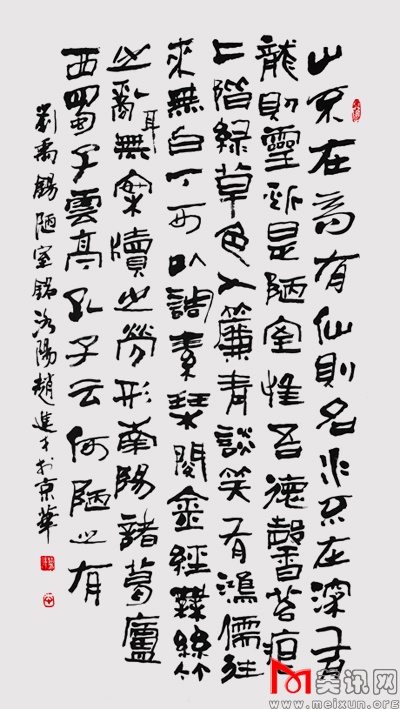 山不在高有仙則名水不在深有
龍則靈斯是陋室惟吾德馨苔痕
上階綠草色入簾青談笑有鴻儒往
來無白丁可以調素琴閱金經無絲竹
之亂耳無案牘之勞形南陽諸葛廬
西蜀子雲亭孔子云何陋之有
劉禹錫陋室銘洛陽趙進才於京華
美讯网
www.meixun.org